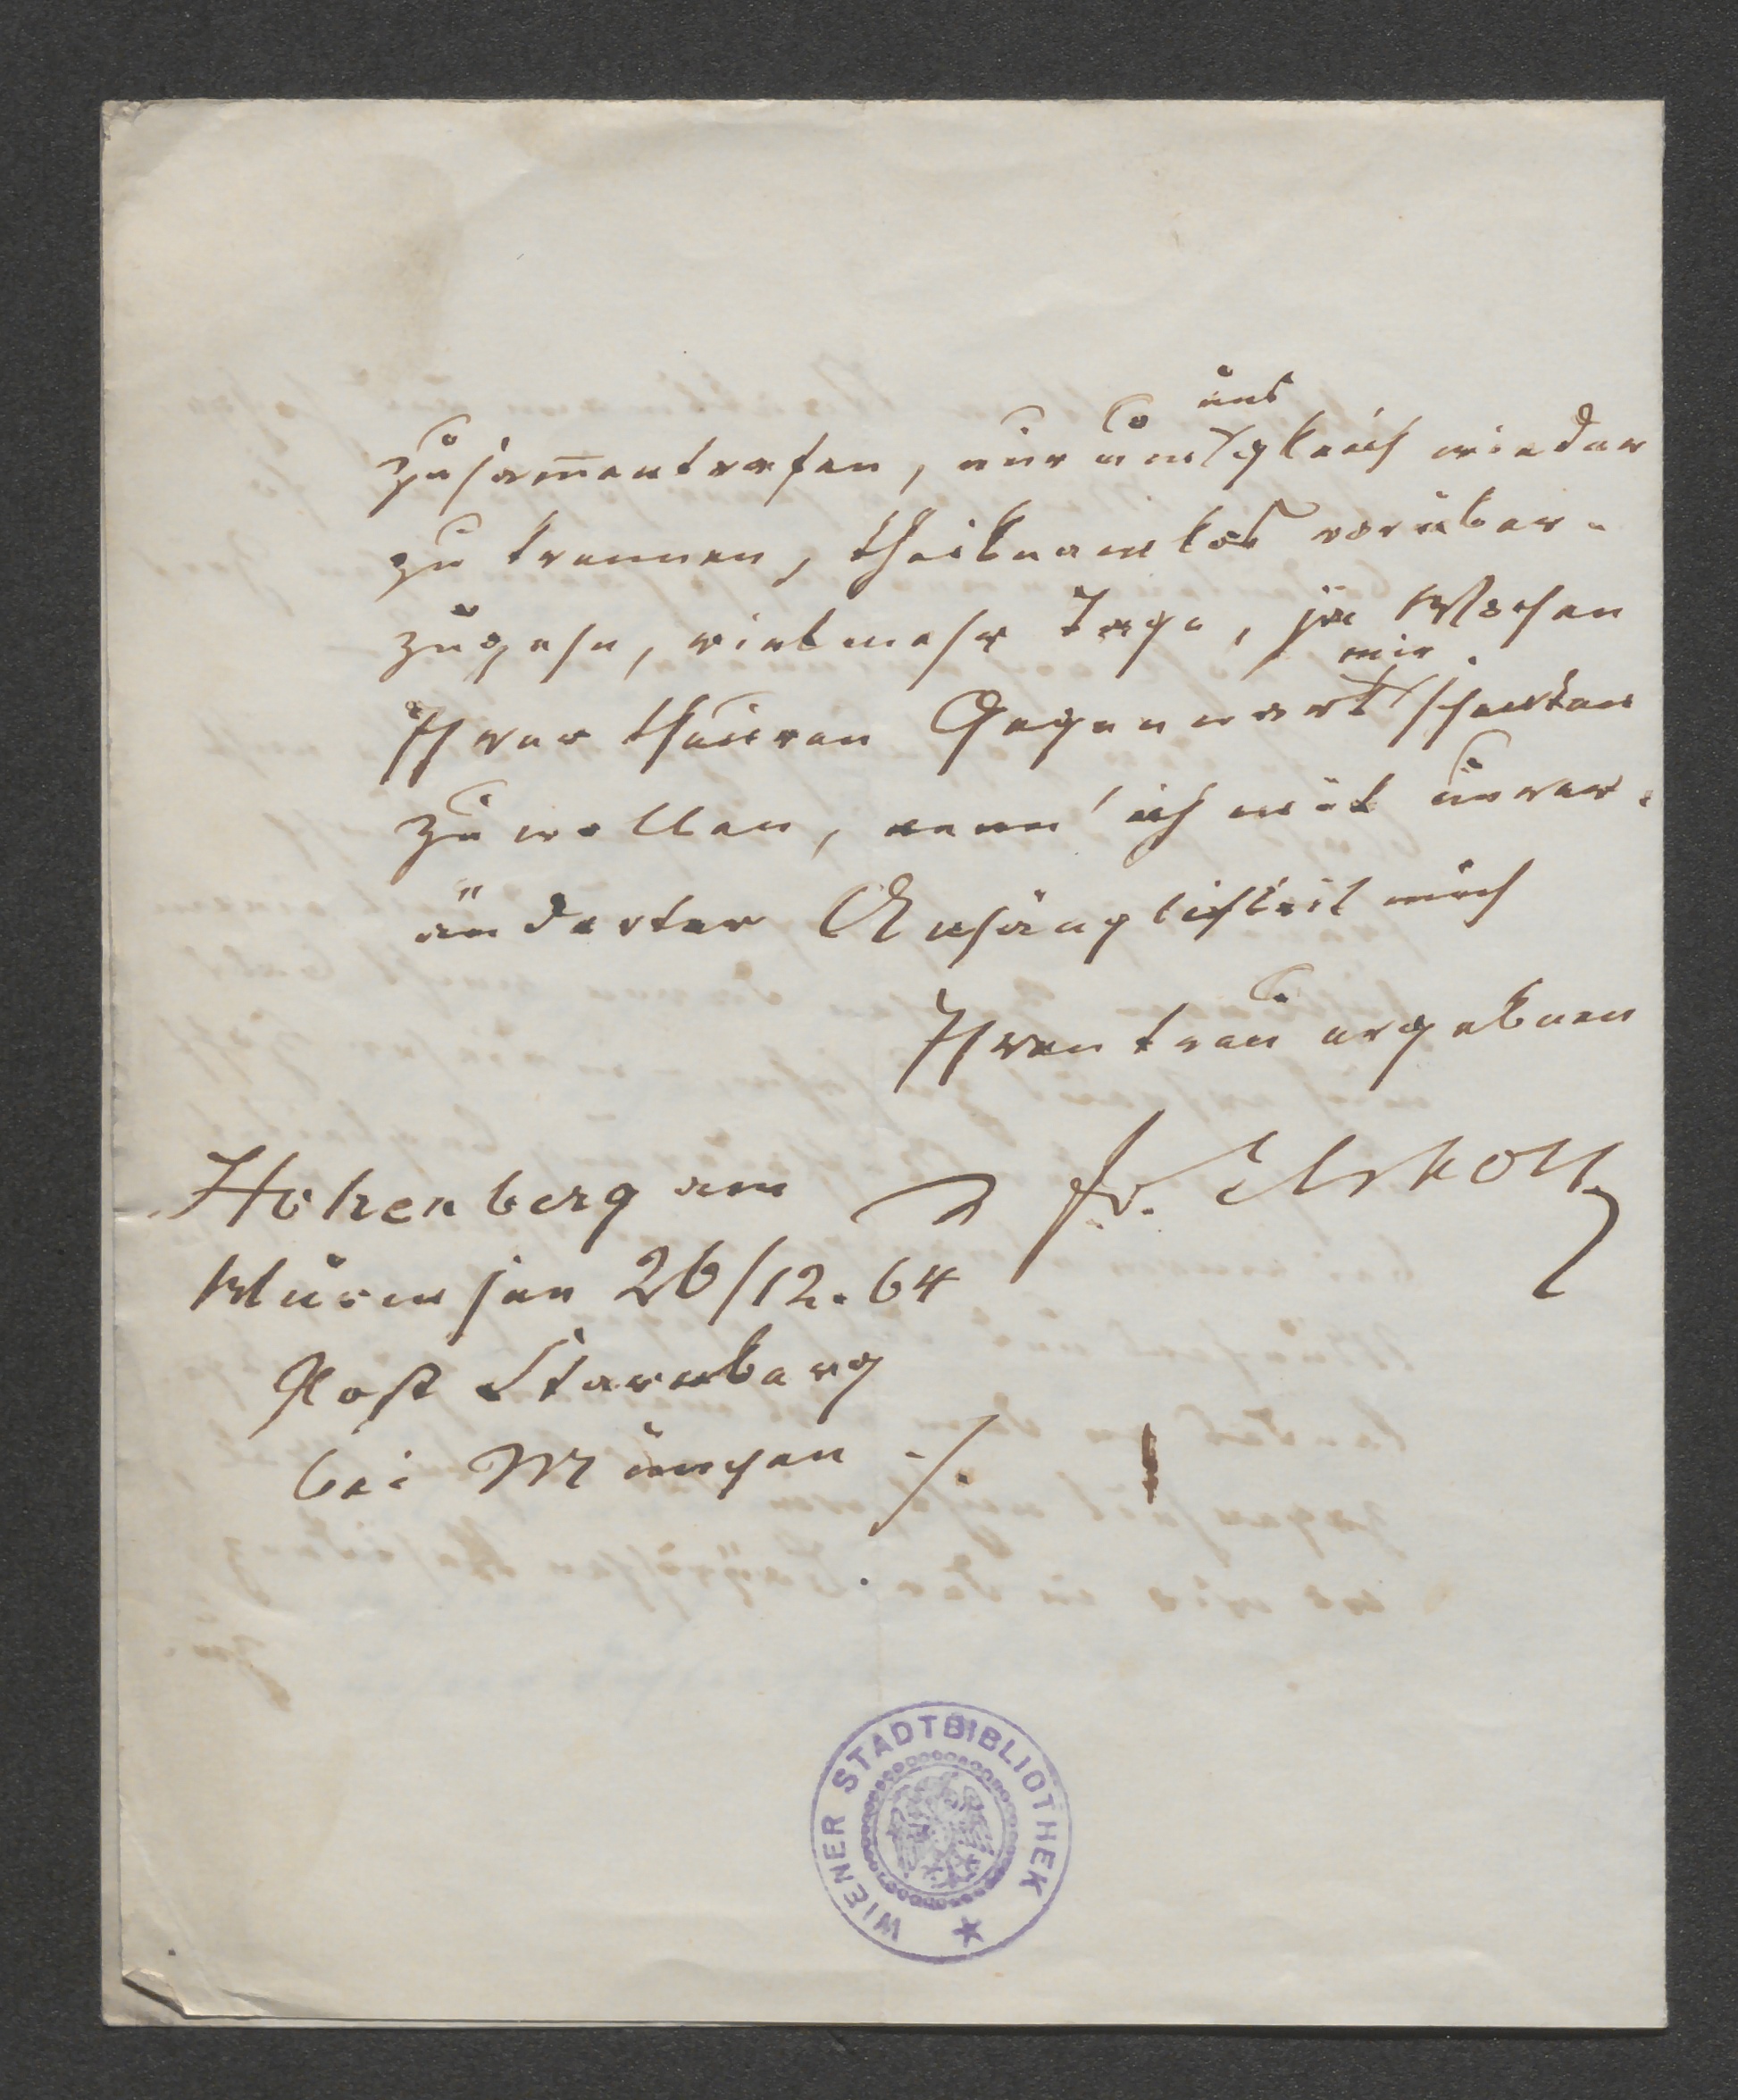 zusam̅entrafen, nur um uns gleich wieder
zu trennen, theilnamlos vorüber-
zugehn, vielmehr Tage, ja Wochen
Ihrer theuren Gegenwart mir schenken
zu wollen, nenn' ich mit unver-
änderter Anhänglichkeit mich
Ihren treu ergebnen
Hohenberg am
Würmsee 26/12. 64
Post Starnberg
bei München ./.
WIENER STADTBIBLIOTHEK